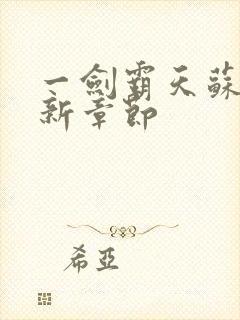 一劍霸天蘇
新章節
希亞